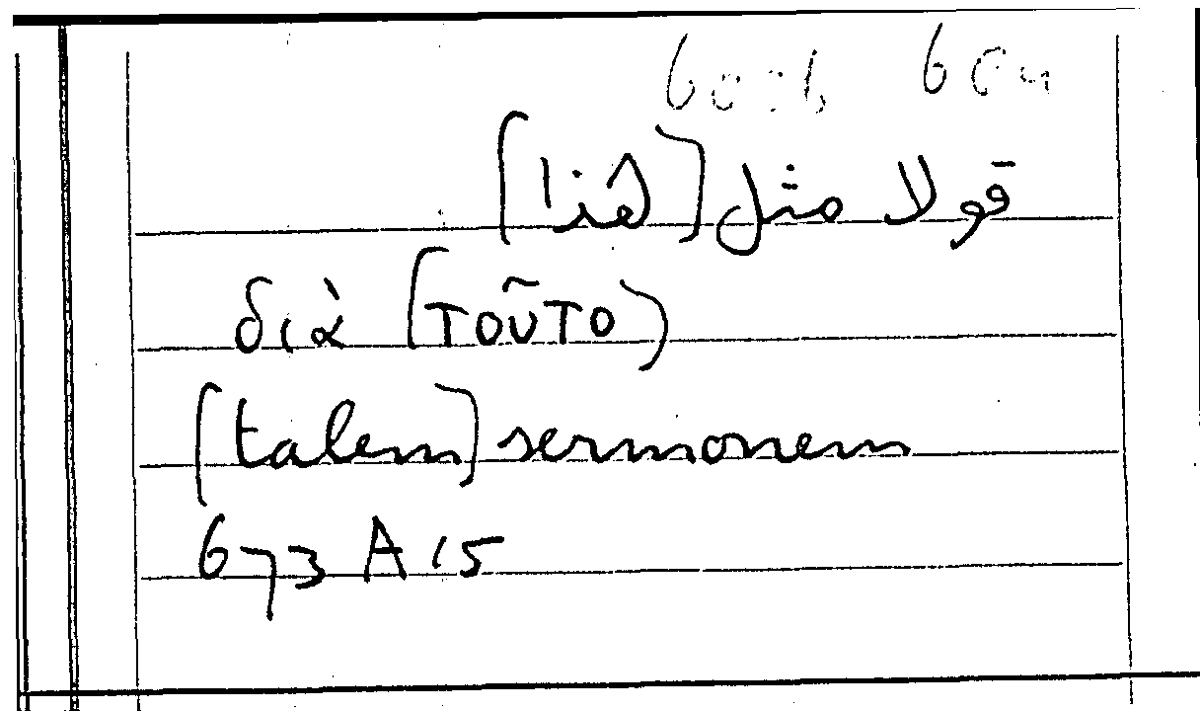 قولا مثل [هذا]
διὰ (τοῦτο)
[talem] sermonem
673 A 15